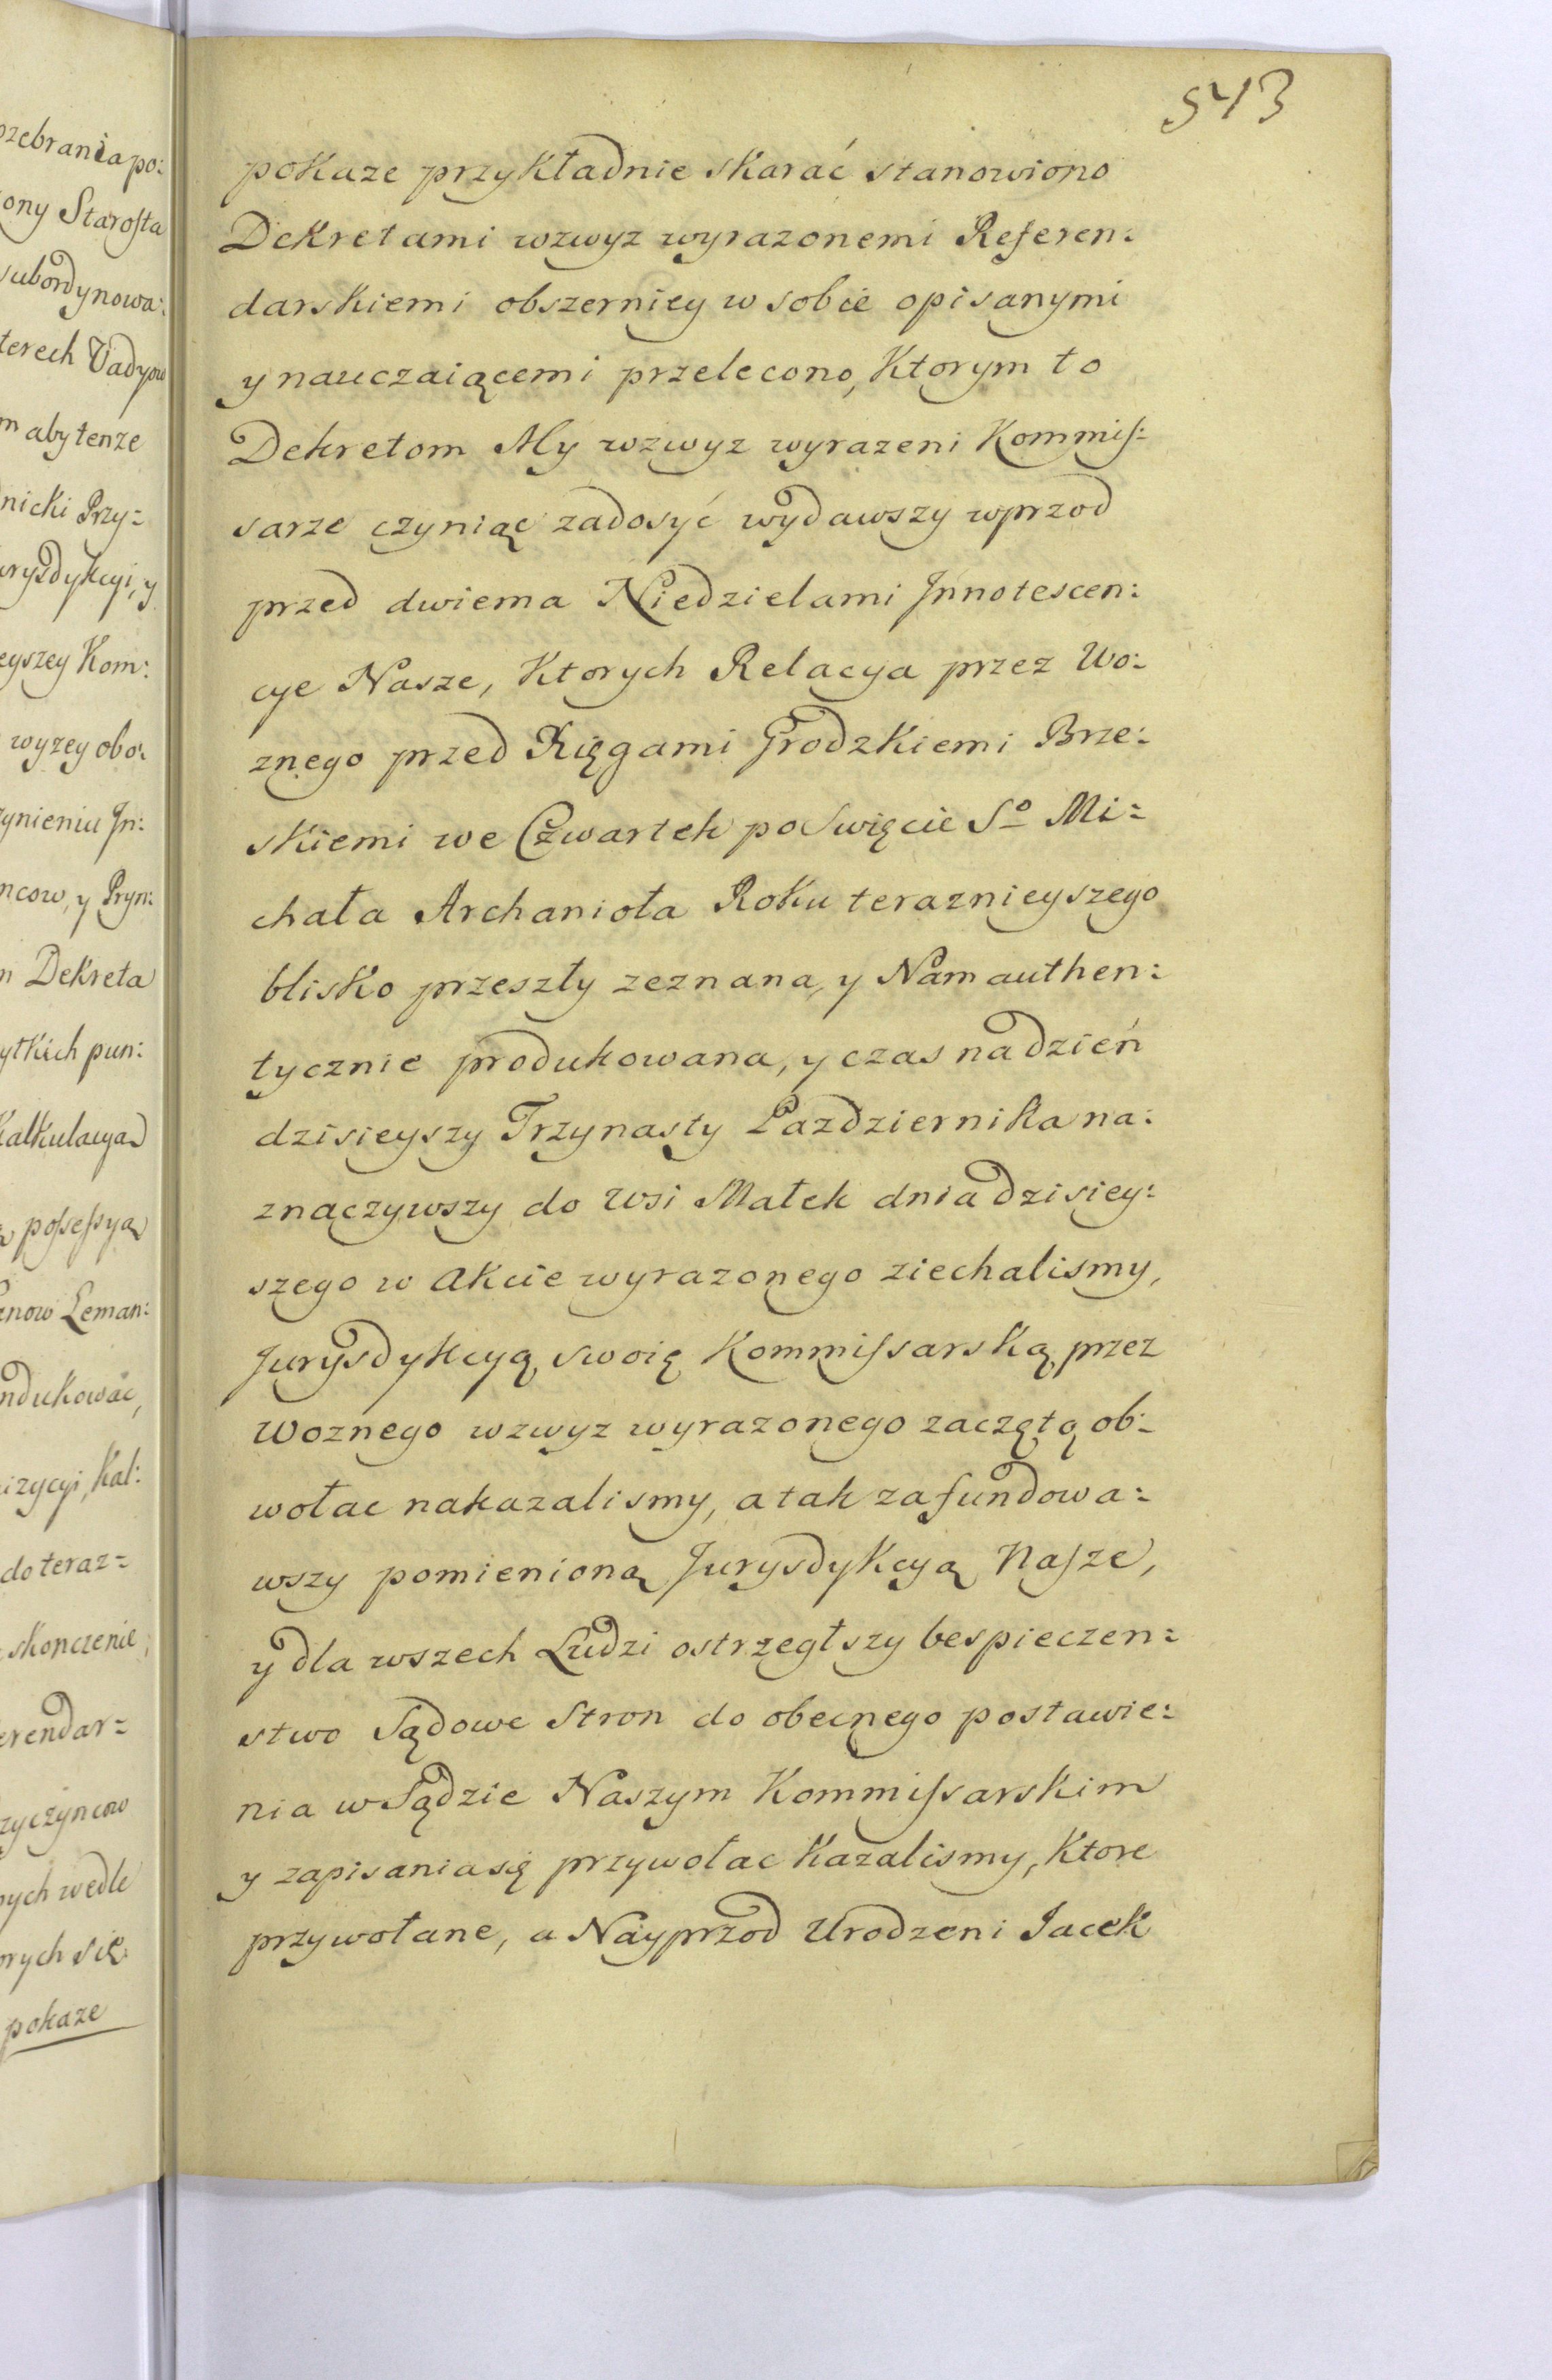 ozebrania po:
ony Starosta
subordynowa:
terech Vadyow
m aby tenze
nicki Przy=
urysdykcyi, y
eyszey Kom:
wyzey obo:
zynieniu Jn:
ncow, y Pryn:
n Dekreta
ytkich pun:
Kalkulacya
possessyą
anow Leman:
ndukować,
izycyi, Kal:
do teraz=
skonczenie
erendar=
zyczyncow
nych wedle
orych się
pokaze
543
pokaze przykładnie skarać stanowiono
Dekretami wzwyz wyrazonemi Referen:
darskiemi obszerniey w sobie opisanymi
y nauczaiącemi przelecono, Ktorym to
Dekretom My wzwyz wyrazeni Kommis:
sarze czyniąc zadosyć wydawszy wprzod
przed dwiema Niedzielami Jnnotescen:
cye Nasze, Ktorych Relacya przez Wo:
znego przed Xięgami Grodzkiemi Brze:
skiemi we Czwartek po Swięcie So Mi=
chała Archanioła Roku teraznieyszego
blisko przeszły zeznana, y Nam authen:
tycznie produkowana, y czas na dzień
dzisieyszy Trzynasty Pazdziernika na:
znaczywszy do Wsi Małek dnia dzisiey:
szego w Akcie wyrazonego ziechalismy,
Jurysdykcyą swoię Kommissarską przez
Woznego wzwyz wyrazonego zaczętą ob:
wołac nakazalismy, a tak zafundowa:
wszy pomienioną Jurysdykcyą Nasze,
y dla wszech Ludzi ostrzegłszy bespieczen=
stwo Sądowe Stron do obecnego postawie:
nia w Sądzie Naszym Kommissarskim
y zapisania się przywołac Kazalismy, Ktore
przywołane, a Nayprzod Urodzeni Jacek